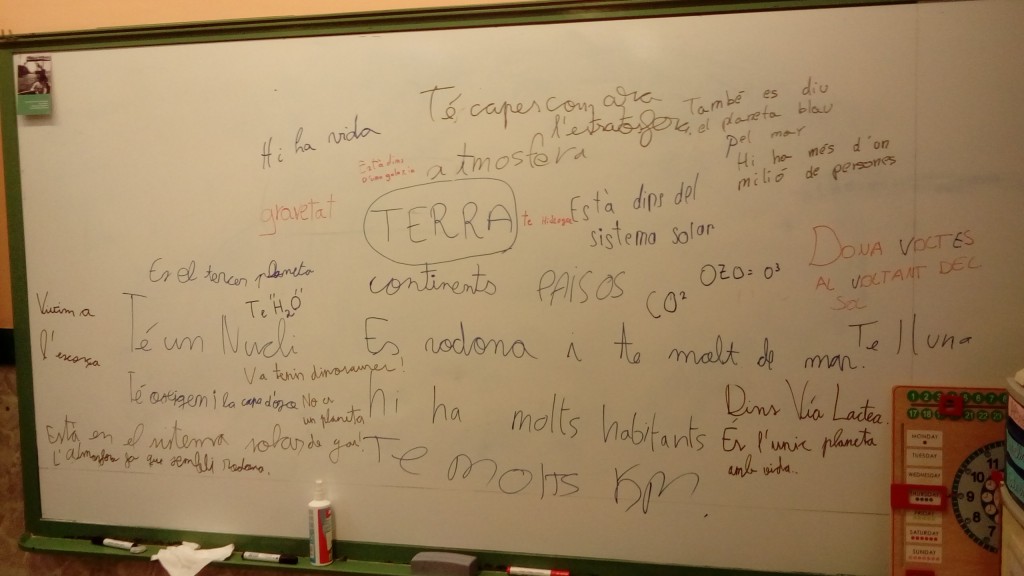 Té capes com ara
l'estratosfera
També es diu
el planeta blau
pel mar
Hi ha més d'un
milió de persones
Hi ha vida
Està dins
d'una galaxia
atmosfera
gravetat
TERRA
te hidrogen
Està dins del
sistema solar
DONA VOLTES
AL VOLTANT DEL
SOL
Es el tercer planeta
continents
PAÏSOS
CO²
OZO = O³
Te "H₂O"
Vivim a
l'escorça
Té un Nucli
Es rodona i te molt de mar.
Te lluna
Va tenir dinosaures!
Té oxigen i la capa d'ozo
No es
un planeta
de gas!
hi ha molts habitants
Dins Vía Lactea
Està en el sistema solar
L'atmosfera fa que sembli rodona.
És l'unic planeta
amb vida.
Te molts Km.
MONDAY
TUESDAY
WEDNESDAY
THURSDAY
SATURDAY
SUNDAY
11
10
9
8
7
6